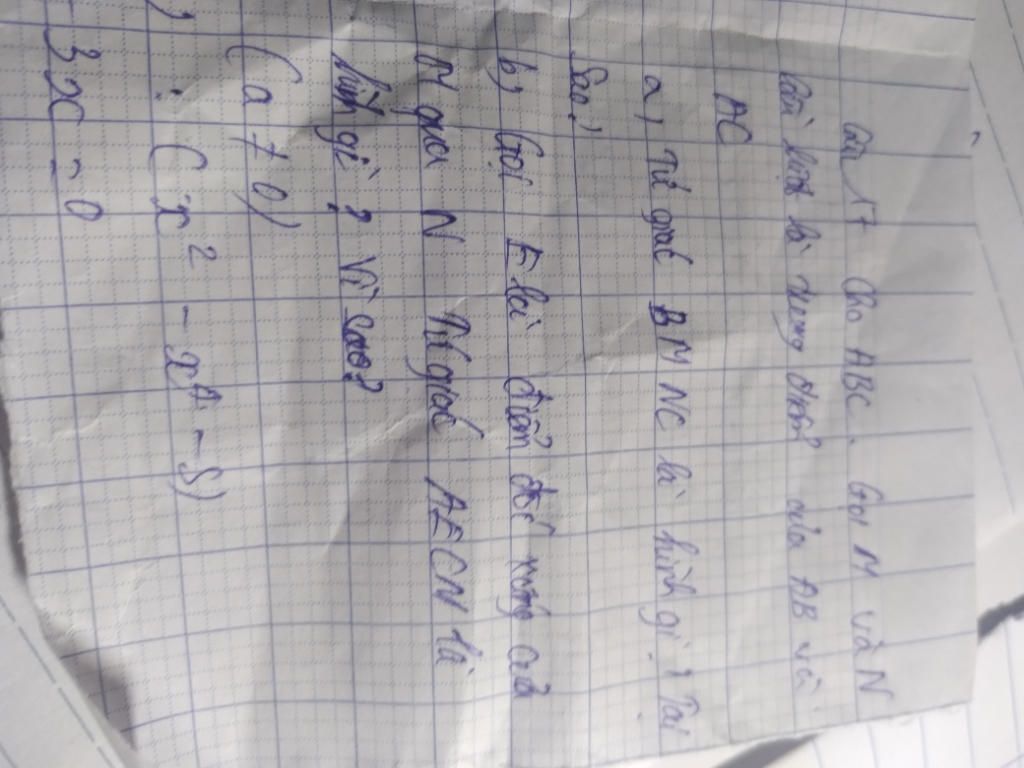 Câu 17 Cho ABC. Gọi M và N
lần lượt là trung điểm của AB và
AC
a) Tứ giác BMNC là hình gì? Tại
Sao?
b) Gọi E là điểm đối xứng của
N qua N Tứ giác AECN là
hình gì? Vì sao?
(a ≠ 0)
: (x² -
3x = 0